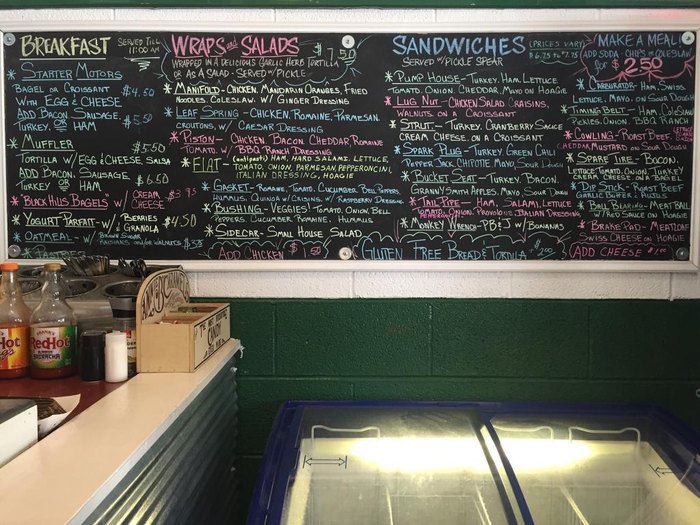 BREAKFAST SERVED TILL 11:00 AM
* STARTER MOTORS
BAGEL OR CROISSANT
WITH EGG & CHEESE $4.50
ADD BACON, SAUSAGE,
TURKEY, OR HAM $5.50
* MUFFLER $5.50
TORTILLA W/ EGG & CHEESE, SALSA
ADD BACON, SAUSAGE,
TURKEY OR HAM $6.50
* BLACK HILLS BAGELS W/ CREAM CHEESE
* YOGURT PARFAIT - W/ BERRIES & GRANOLA $4.50
* OATMEAL - W/ BROWN SUGAR
WRAPS and SALADS $7.50
WRAPPED IN A DELICIOUS GARLIC HERB TORTILLA
OR AS A SALAD - SERVED W/ PICKLE
* MANIFOLD - CHICKEN, MANDARIN ORANGES, FRIED
NOODLES, COLESLAW, W/ GINGER DRESSING
* LEAF SPRING - CHICKEN, ROMAINE, PARMESAN,
CROUTONS, W/ CAESAR DRESSING
* PISTON - CHICKEN, BACON, CHEDDAR, ROMAINE
TOMATO, W/ BBQ & RANCH DRESSING
* FIAT - (antipasti) HAM, HARD SALAMI, LETTUCE,
TOMATO, ONION, PARMESAN, PEPPERONCINI,
ITALIAN DRESSING
* GASKET - ROMAINE, TOMATO, CUCUMBER, BELL PEPPERS,
HUMMUS, QUINOA W/ CRAISINS, W/ RASPBERRY DRESSING
* BUSHING - VEGGIES! TOMATO, ONION, BELL
PEPPERS, CUCUMBER, ROMAINE, HUMMUS
* SIDECAR - SMALL HOUSE SALAD
ADD CHICKEN
SANDWICHES (PRICES VARY) $6.75 TO 7.75
SERVED W/ PICKLE SPEAR
* PUMP HOUSE - TURKEY, HAM, LETTUCE
TOMATO, ONION, CHEDDAR, MAYO ON HOAGIE
* LUG NUT - CHICKEN SALAD, CRAISINS,
WALNUTS ON A CROISSANT
* STRUT - TURKEY, CRANBERRY SAUCE
CREAM CHEESE ON A CROISSANT
* SPARK PLUG - TURKEY, GREEN CHILI
PEPPER JACK, CHIPOTLE MAYO, SOUR DOUGH
* BUCKET SEAT - TURKEY, BACON,
GRANNY SMITH APPLES, MAYO, SOUR DOUGH
* TAIL PIPE - HAM, SALAMI, LETTUCE
TOMATO, ONION, PROVOLONE, ITALIAN DRESSING
* MONKEY WRENCH - PB & J W/ BANANAS
GLUTEN FREE BREAD & TORTILLA
MAKE A MEAL!
ADD SODA - CHIPS OR COLESLAW
for $2.50
* CARBURATOR - HAM, SWISS
LETTUCE, MAYO, ON SOUR DOUGH
* TIMING BELT - HAM, COLESLAW
PICKLES, ONION, BBQ & RANCH
* COWLING - ROAST BEEF,
CHEDDAR, MUSTARD ON SOUR DOUGH
* SPARE TIRE - BACON,
LETTUCE, TOMATO, ONION, TURKEY,
CREAM CHEESE ON A BAGEL
* DIP STICK - ROAST BEEF
PEPPER & AUJUS
* BALL BEARING - MEATBALL
W/ RED SAUCE ON HOAGIE
* BRAKE PAD - MEATLOAF
SWISS CHEESE ON HOAGIE
ADD CHEESE
RedHot
SRIRACHA
CANDY